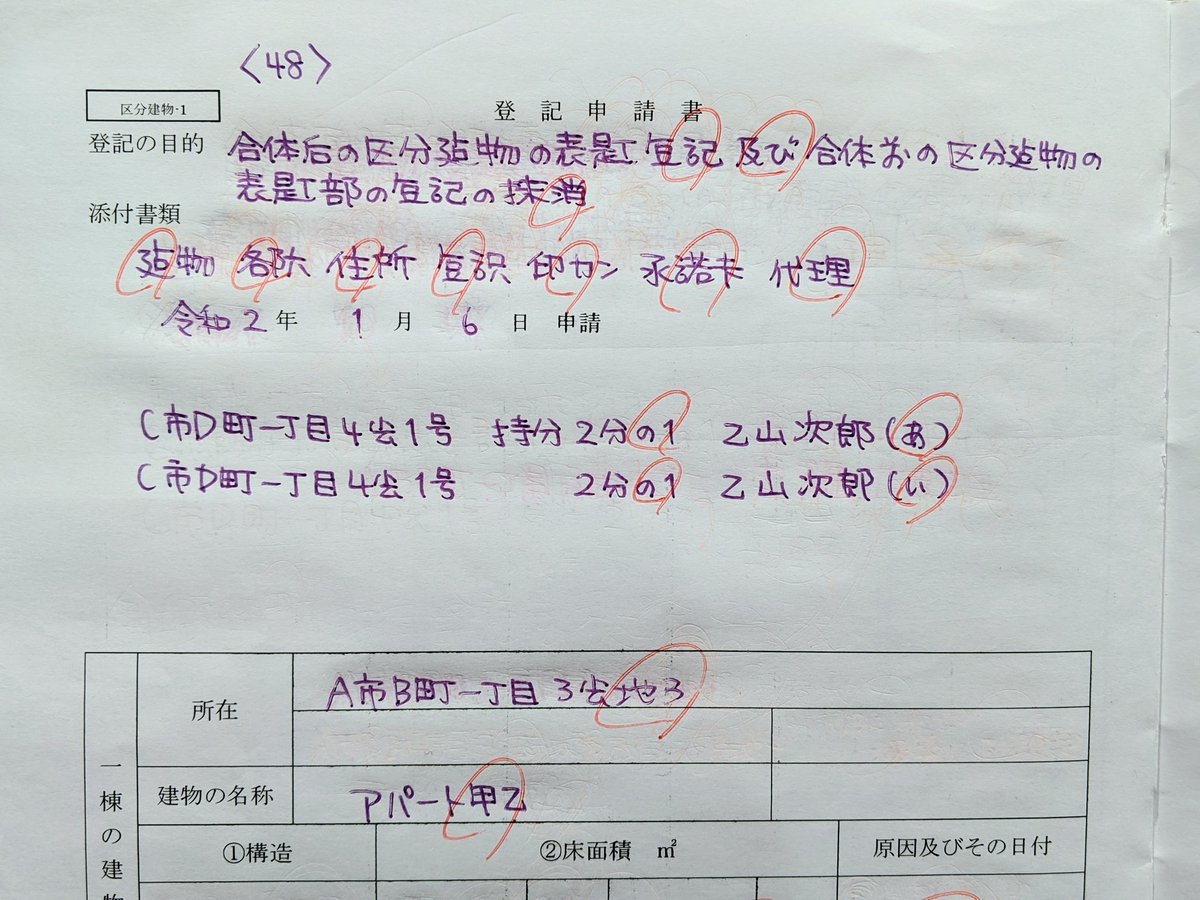 〈48〉
区分建物-1
登記申請書
登記の目的 合体后の区分建物の表題登記及び合体前の区分建物の
表題部の登記の抹消
添付書類
建物 各階 住所 登識 印カン 承諾 代理
令和2年 1月 6日 申請
C市D町一丁目4番1号 持分2分の1 乙山次郎(あ)
C市D町一丁目4番1号 2分の1 乙山次郎(い)
所在 A市B町一丁目3番地3
建物の名称 アパート甲乙
一棟の建物
①構造 ②床面積 ㎡ 原因及びその日付